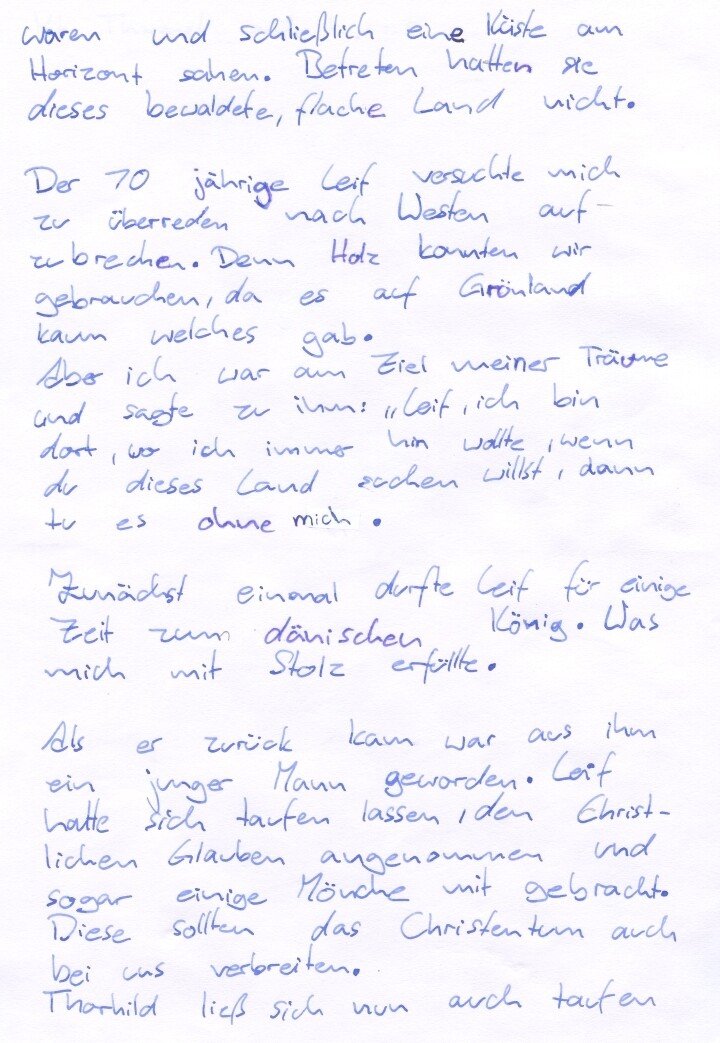 waren und schließlich eine Küste am
Horizont sahen. Betreten hatten sie
dieses bewaldete, flache Land nicht.
Der 10 jährige Leif versuchte mich
zu überreden nach Westen auf-
zubrechen. Denn Holz konnten wir
gebrauchen, da es auf Grönland
kaum welches gab.
Aber ich war am Ziel meiner Träume
und sagte zu ihm: „Leif, ich bin
dort, wo ich immer hin wollte, wenn
du dieses Land suchen willst, dann
tu es ohne mich.
Zunächst einmal durfte Leif für einige
Zeit zum dänischen König. Was
mich mit Stolz erfüllte.
Als er zurück kam war aus ihm
ein junger Mann geworden. Leif
hatte sich taufen lassen, den Christ-
lichen Glauben angenommen und
sogar einige Mönche mit gebracht.
Diese sollten das Christentum auch
bei uns verbreiten.
Thorhild ließ sich nun auch taufen